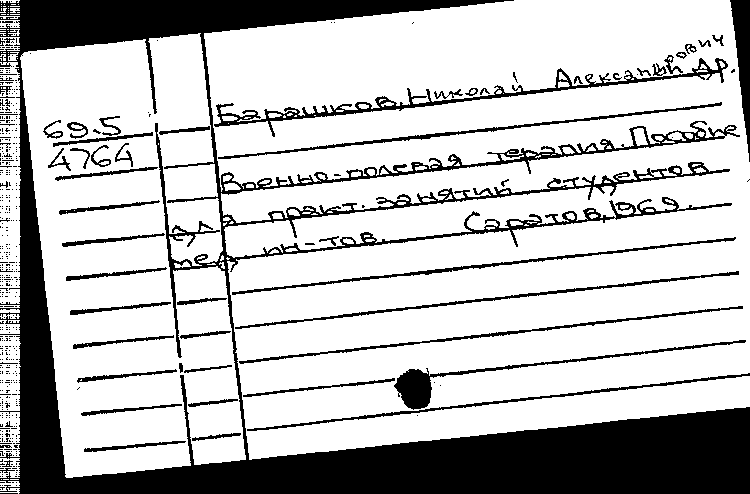 69.5
4764
Барашков, Николай Александрович др.
Военно-полевая терапия. Пособие
для практ. занятий студентов
мед ин-тов. Саратов, 1969.